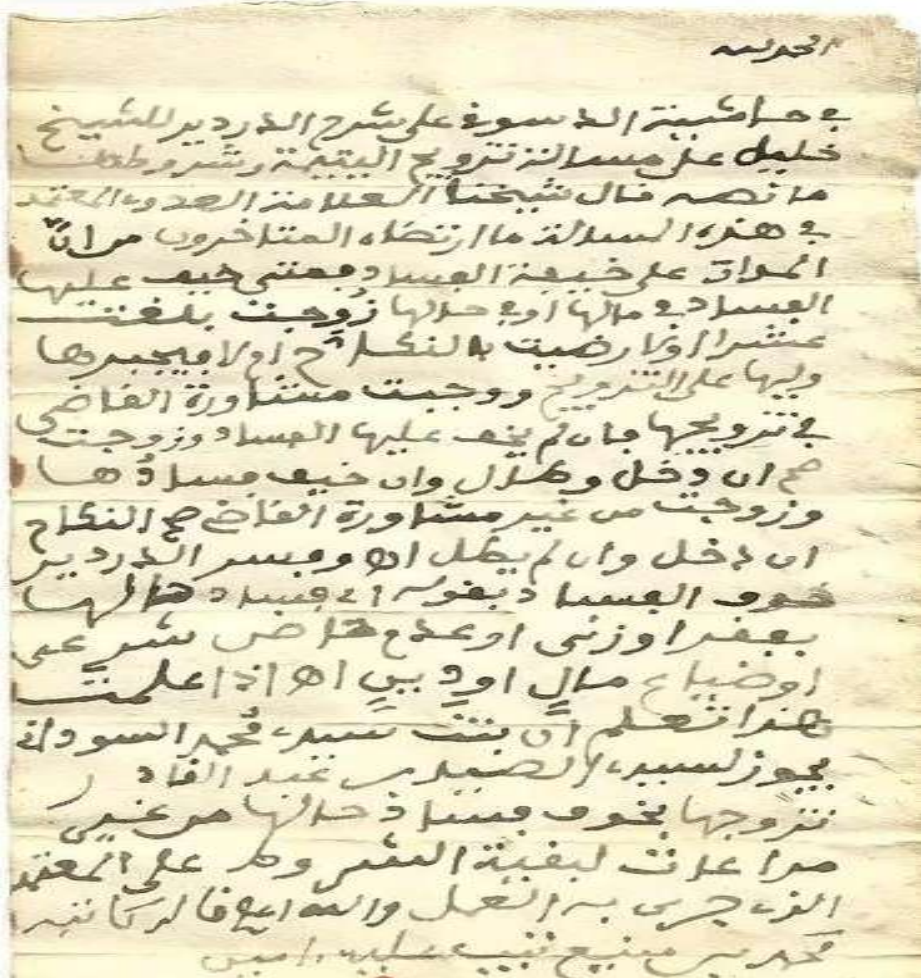 الحمد لله
في حاشية الدسوقي على شرح الدردير للشيخ
خليل على مسالة تزويج اليتيمة وشروطها
ما نصه قال شيخنا العلامة العدوي المعتمد
في هذه المسالة ما ارتضاه المتاخرون من ان
المدار على خيفة الفساد فمتى خيف عليها
الفساد في مالها او في حالها زوجت بلغت
عشرا اولا رضيت بالنكاح ام لا فيجبرها
وليها على التزويج ووجبت مشاورة القاضي
في تزويجها فان لم يخف عليها الفساد وزوجت
صح ان دخل وطال وان خيف فسادها
وزوجت من غير مشاورة القاضي صح النكاح
ان دخل وان لم يطل اه وفسر الدردير
خوف الفساد بقوله اي فساد حالها
بفقر او زنى او عدم قاض شرعي
او ضياع مال او دين اه اذا علمت
هذا تعلم ان بنت سيد محمد السوداني
يجوز لسيد الصديق بن عبد القادر
تزوجها بخوف فساد حالها من غير
مراعات لبقية الشروط على المعتمد
الذي جرى به العمل والله اعلم قاله كاتبه
محمد بن